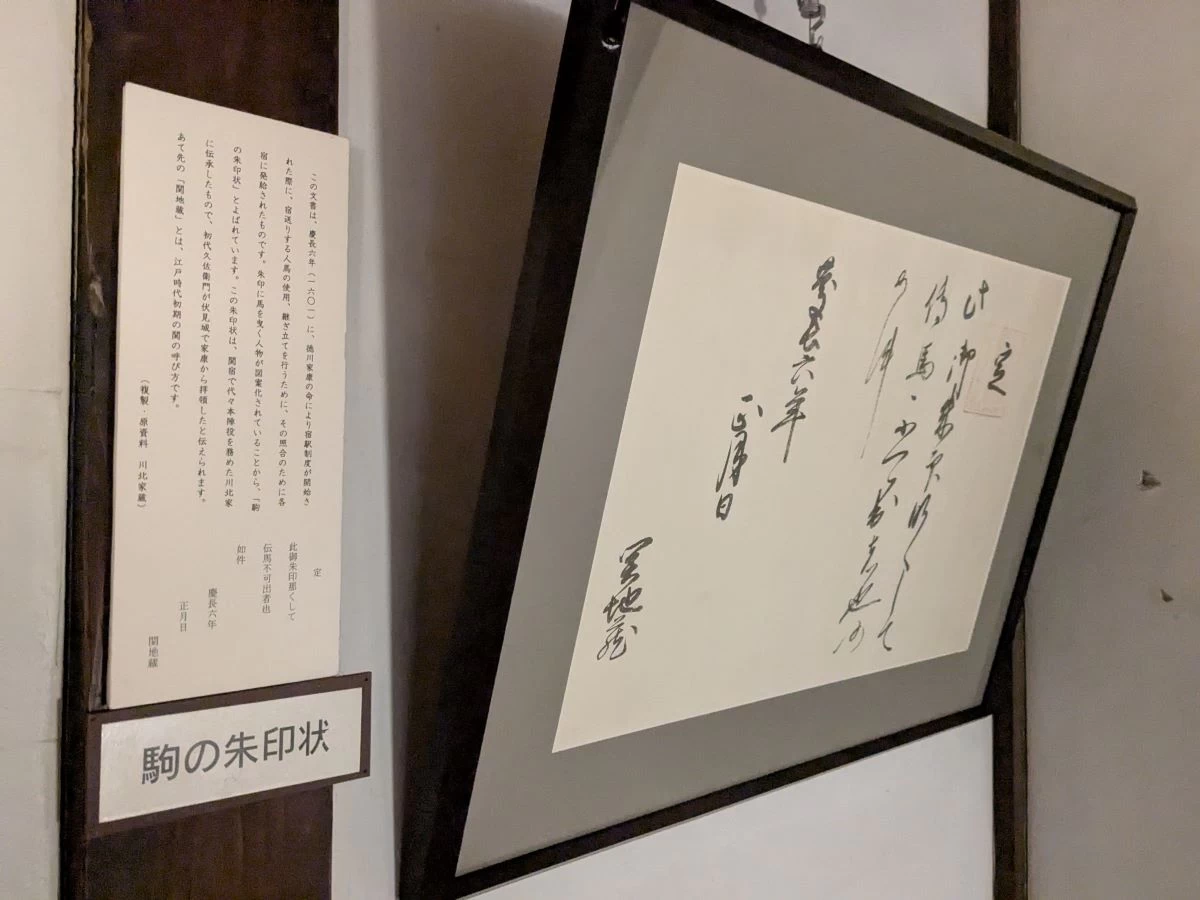 この文書は、慶長六年(一六〇一)に、徳川家康の命により宿駅制度が開始さ
れた際に、宿送りする人馬の使用、継ぎ立てを行うために、その照合のために各
宿に発給されたものです。朱印に馬を曳く人物が図案化されていることから、「駒
の朱印状」とよばれています。この朱印状は、関宿で代々本陣役を務めた川北家
に伝承したもので、初代久佐衛門が伏見城で家康から拝領したと伝えられます。
あて先の「関地蔵」とは、江戸時代初期の関の呼び方です。
(複製・原資料 川北家蔵)
定
此御朱印那くして
伝馬不可出者也
如件
慶長六年
正月日
関地蔵
駒の朱印状
定
此御朱印那くして
傳馬不可出者也仍
如件
慶長六年
正月日
関地蔵